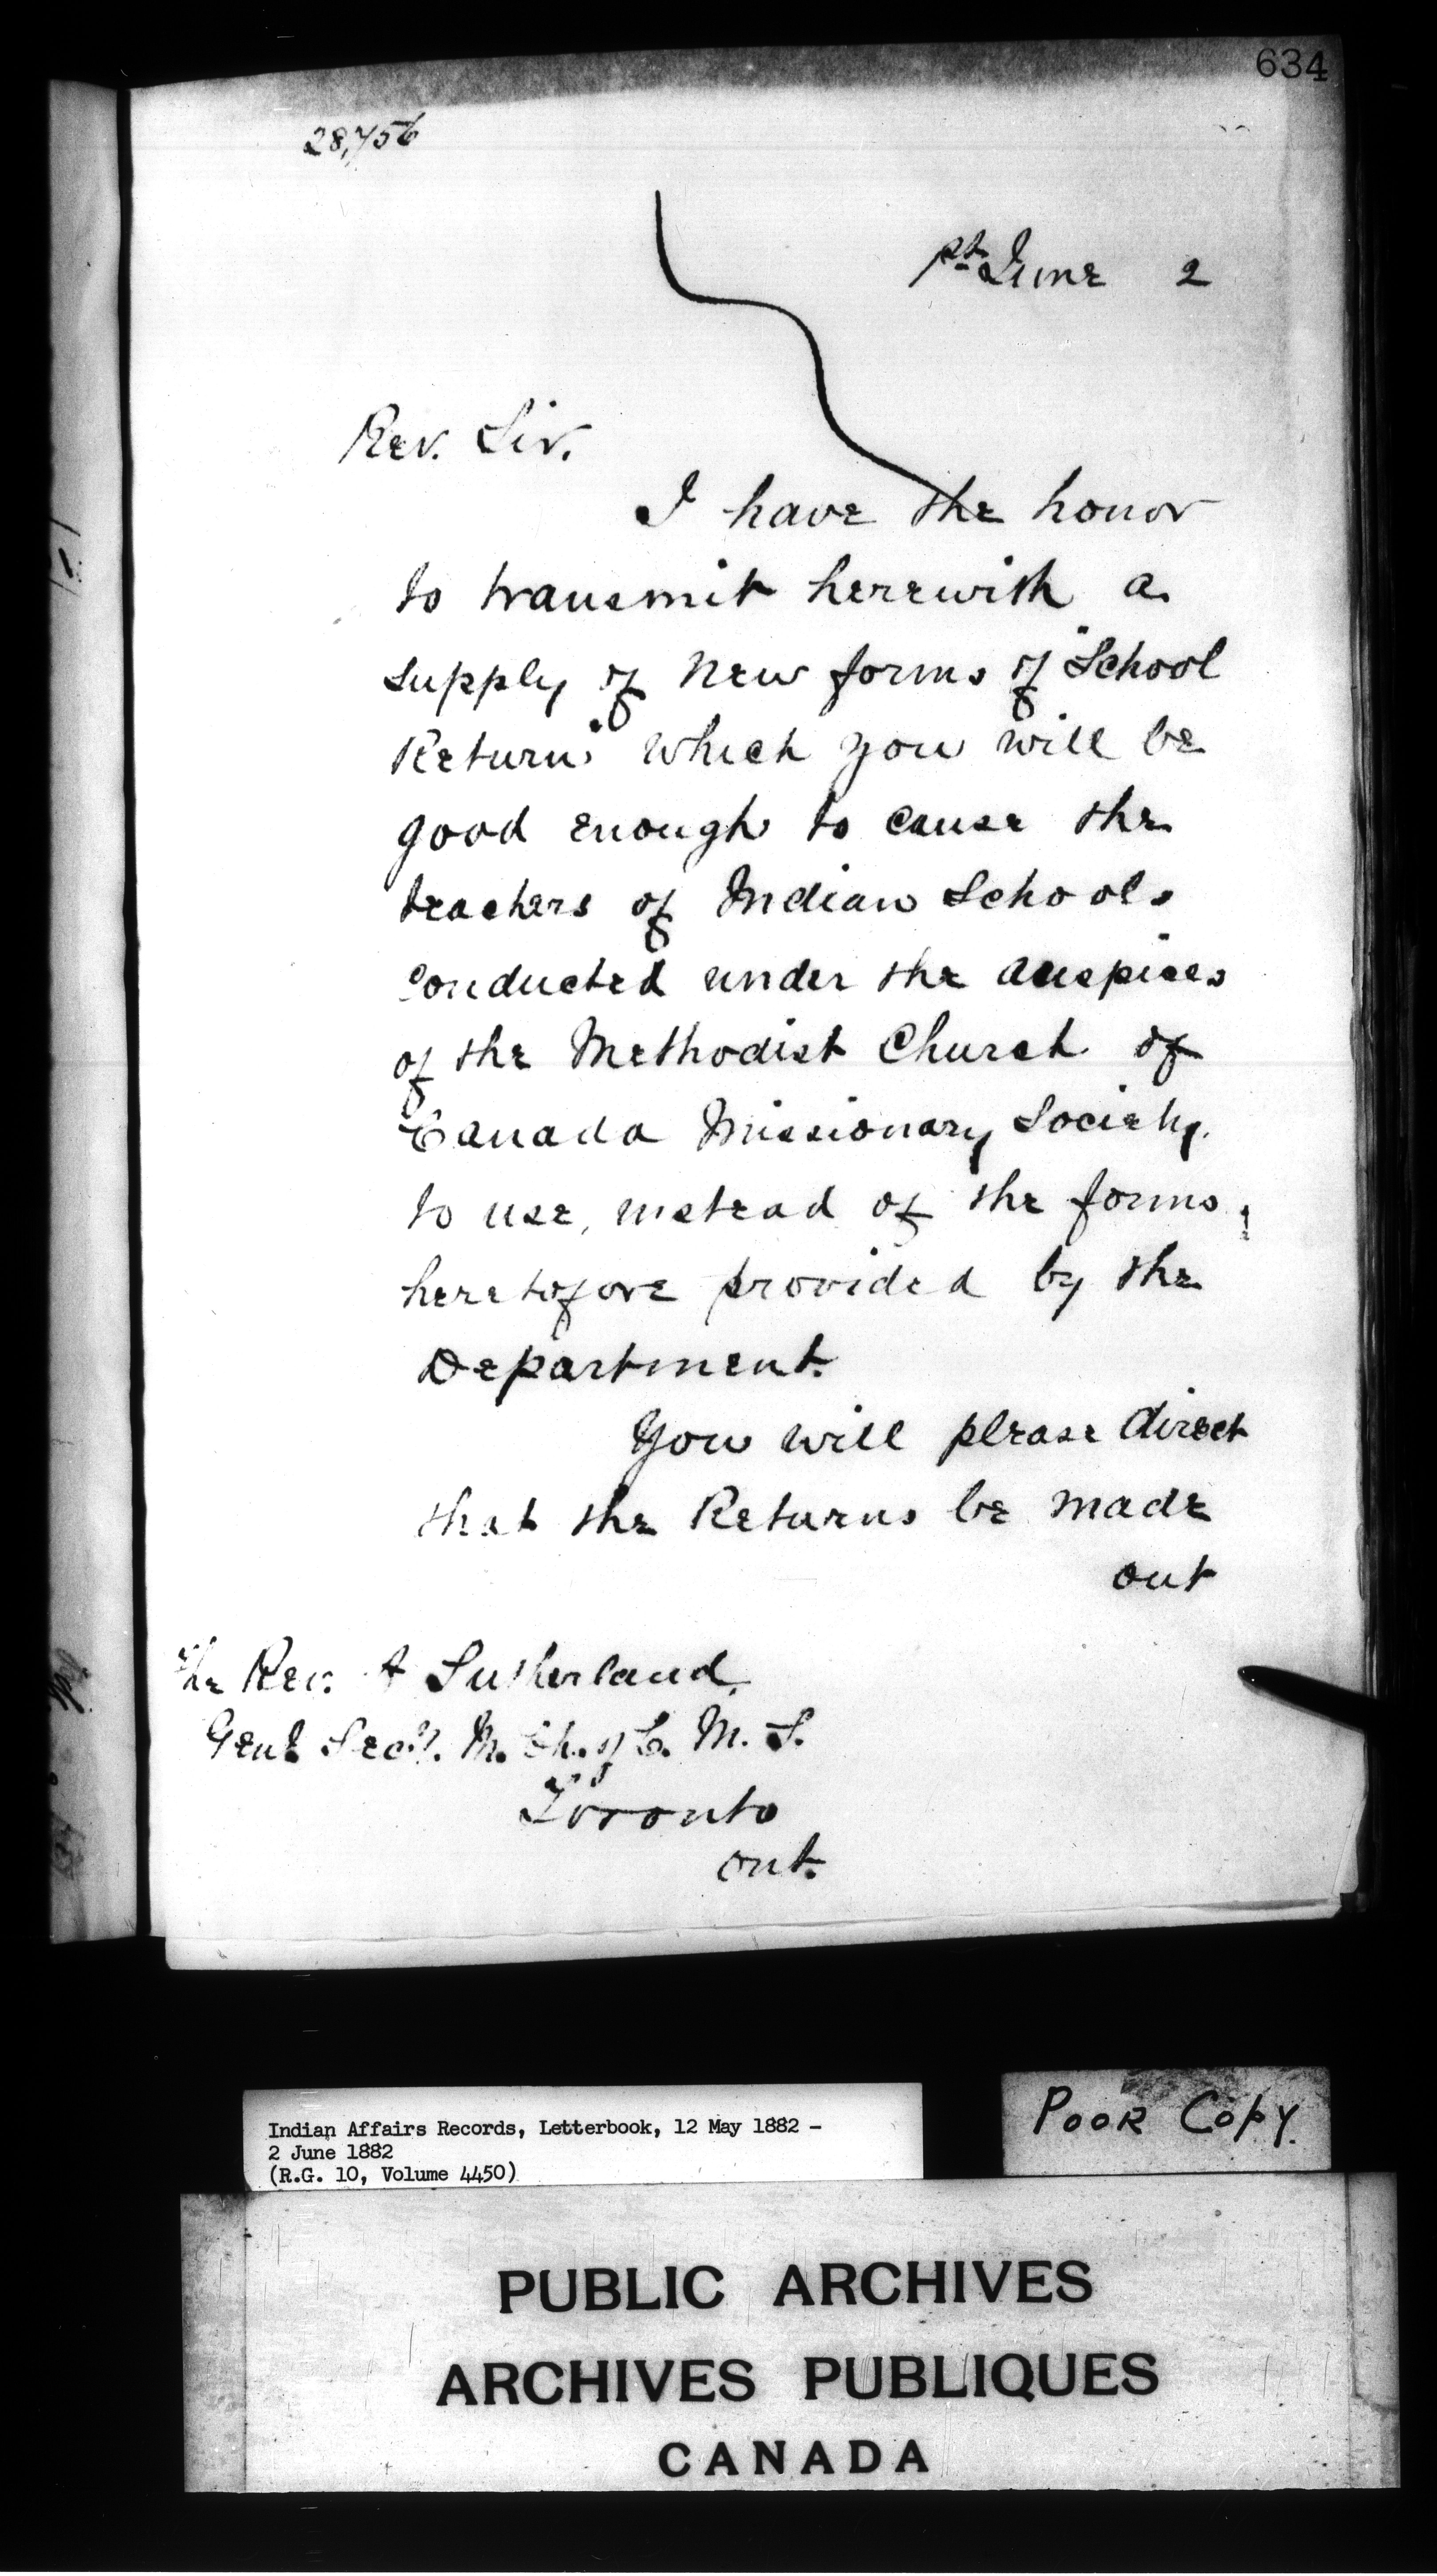 634
28,756
1st June 2
Rev. Sir.
I have the honor
to transmit herewith a
supply of new forms of "School
Returns" which you will be
good enough to cause the
teachers of Indian Schools
conducted under the auspices
of the Methodist Church of
Canada Missionary Society.
to use, instead of the forms
heretofore provided by the
Department.
You will please direct
that the Returns be made
out
The Rev. A Sutherland,
Genl Secy. M. Ch. of C. M. S.
Toronto
Ont.
Indian Affairs Records, Letterbook, 12 May 1882 -
2 June 1882
(R.G. 10, Volume 4450)
POOR COPY.
PUBLIC ARCHIVES
ARCHIVES PUBLIQUES
CANADA